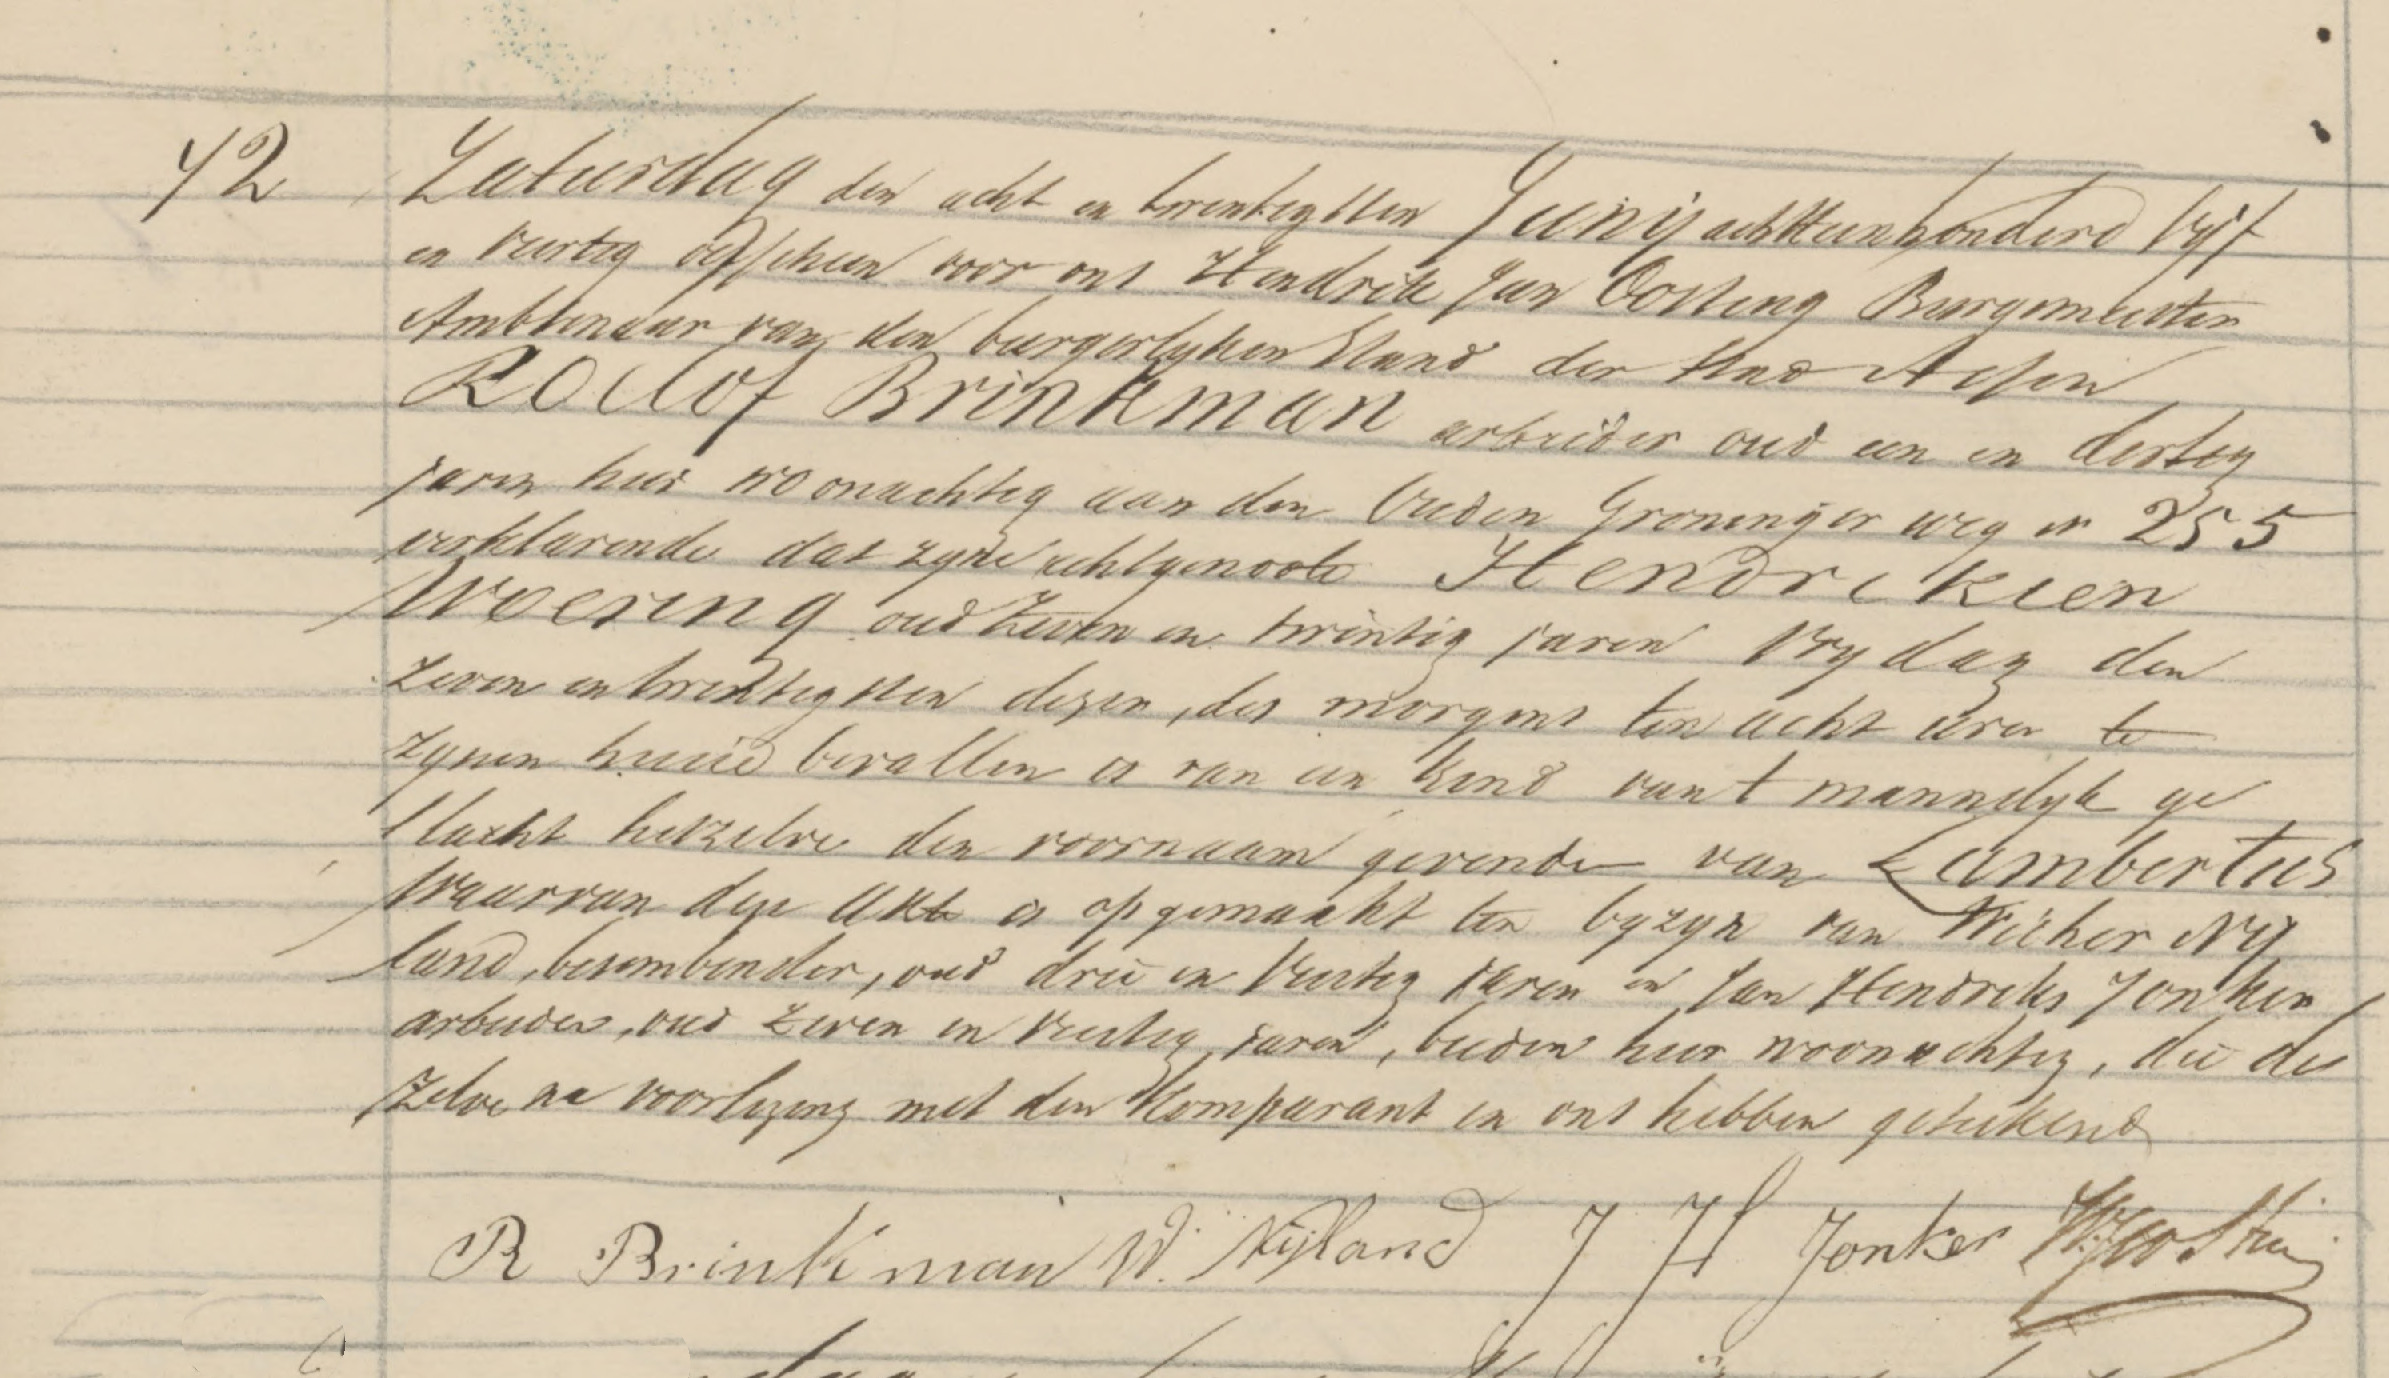 42 Zaturdag den acht en twentigsten Junij achttienhonderd vijf
en veertig verscheen voor ons Hendrik Jan Oosting Burgemeester
Ambtenaar van den burgerlyken Stand der Stad Assen
Roelof Brinkman arbeider oud een en dertig
jaren hier woonachtig aan den Ouden Groninger weg n 255
verklarende dat zyne echtgenoote Hendrikien
Woering oud zeven en twintig jaren Vrydag den
zeven en twentigsten dezer, des morgens ten acht uren te
zynen huize bevallen is van een kind van t mannelyk ge
slacht hetzelve den voornaam gevende van Lambertus
Waarvan deze akte is opgemaakt ten byzyn van Wicher Ny
land, besembinder, oud drie en veertig jaren en Jan Hendriks Jonker
arbeider, oud zeven en veertig jaren, beiden hier woonachtig, die de
zelve na voorlezing met den komparant en ons hebben geteekend
R Brinkman W. Nijland J H Jonker HJOosting